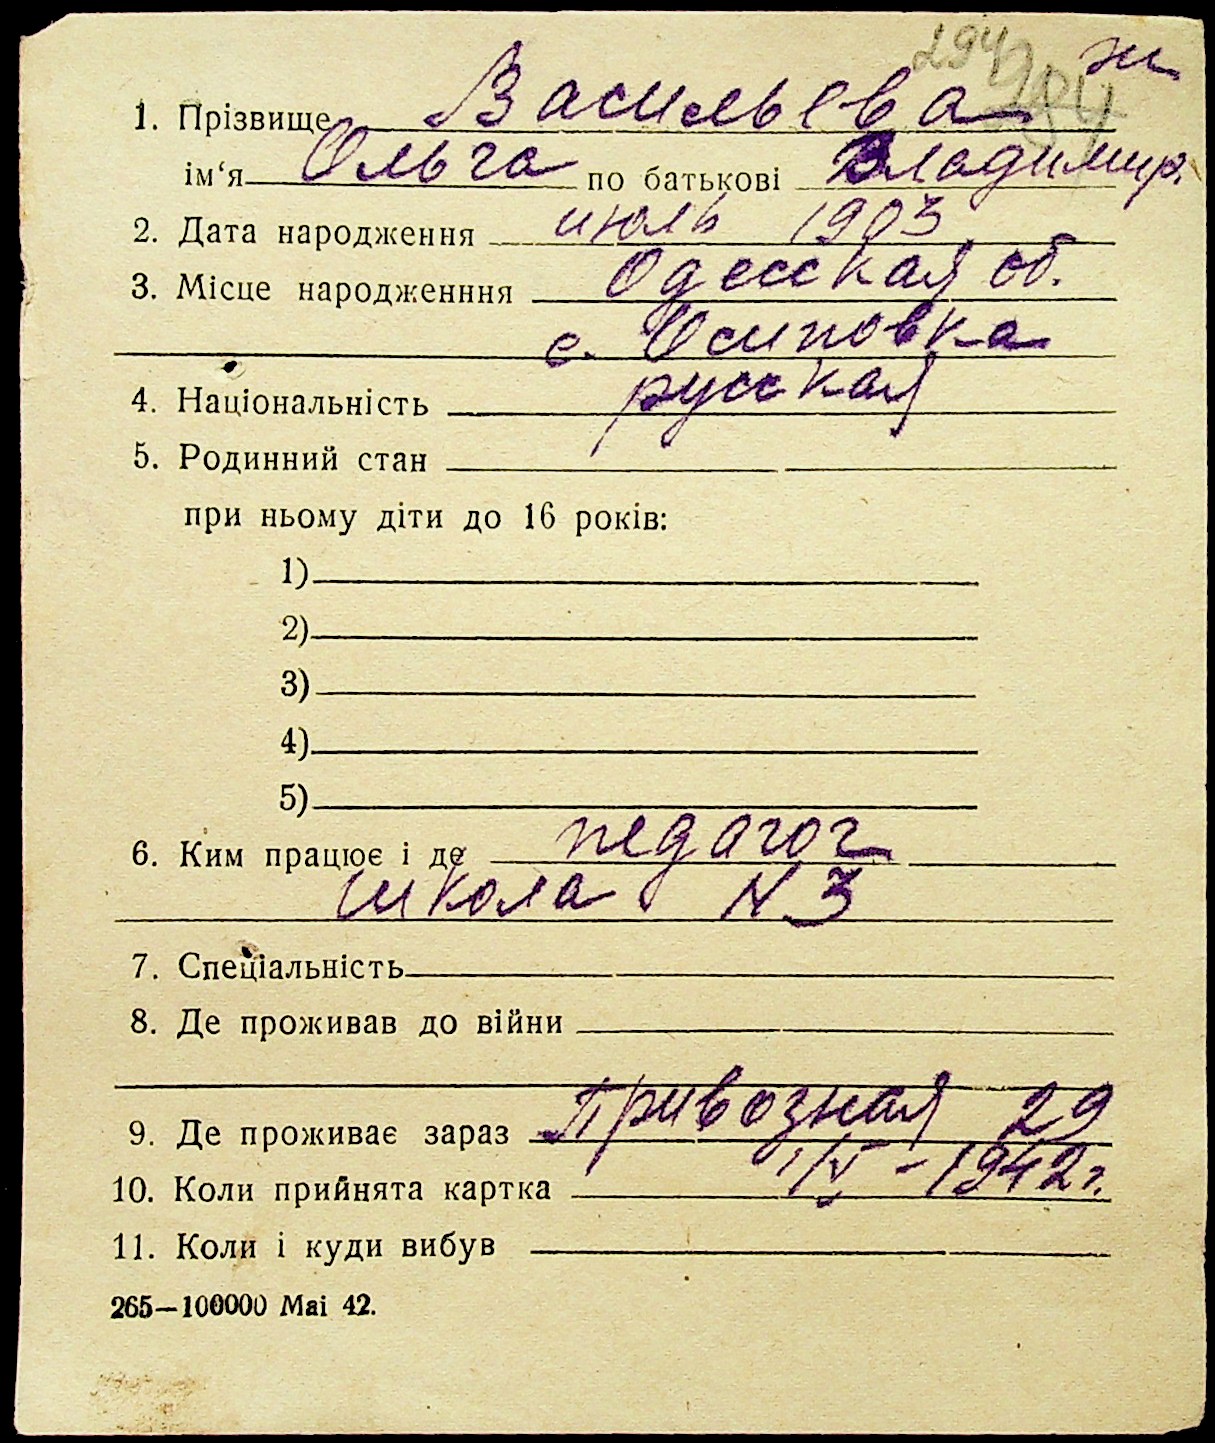 294 ж
184
1. Прізвище Васильева
ім‘я Ольга по батькові Владимир.
2. Дата народження июль 1903
3. Місце народженння Одесская об.
с. Осиповка
4. Національність русская
5. Родинний стан
при ньому діти до 16 років:
1)
2)
3)
4)
5)
6. Ким працює і де педагог
школа N 3
7. Спеціальність
8. Де проживав до війни
9. Де проживає зараз Привозная 29
10. Коли прийнята картка 1/V - 1942 г.
11. Коли і куди вибув
265—100000 Mai 42.